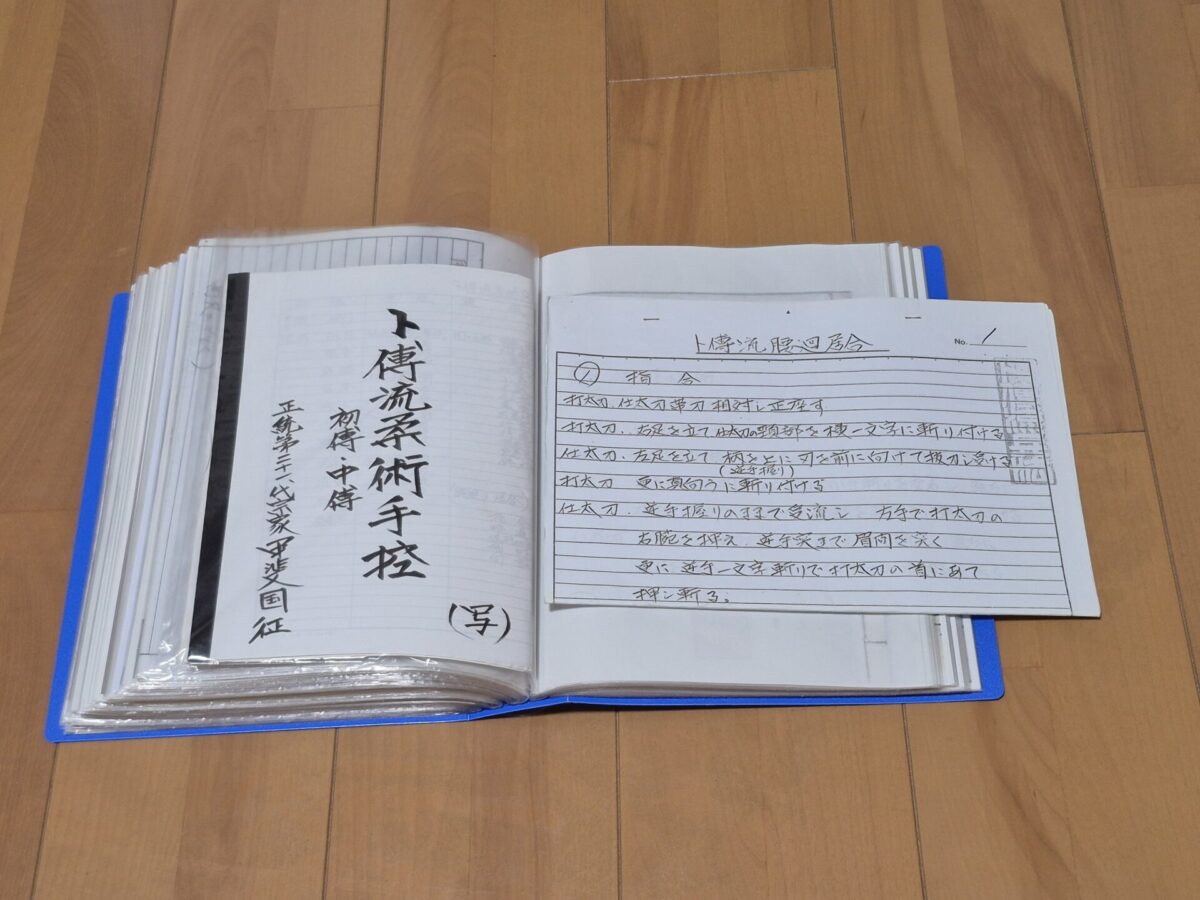 卜傳流柔術手控
初傳・中傳
正統第二十八代宗家 甲斐国征
(写)
卜傳流腰廻居合
No. 1
① 指合
打太刀、仕太刀帯刀相対し正座す
打太刀、右足を立て仕太刀の頸部を横一文字に斬り付ける
仕太刀、左足を立て 柄を上に刃を前に向けて抜刀し受ける
(逆手握り)
打太刀 更に真向うに斬り付ける
仕太刀、逆手握りのままで受流し 左手で打太刀の
右腕を押え 逆手突きで眉間を突く
更に 逆手一文字斬りで打太刀の首にあて
押し斬る。